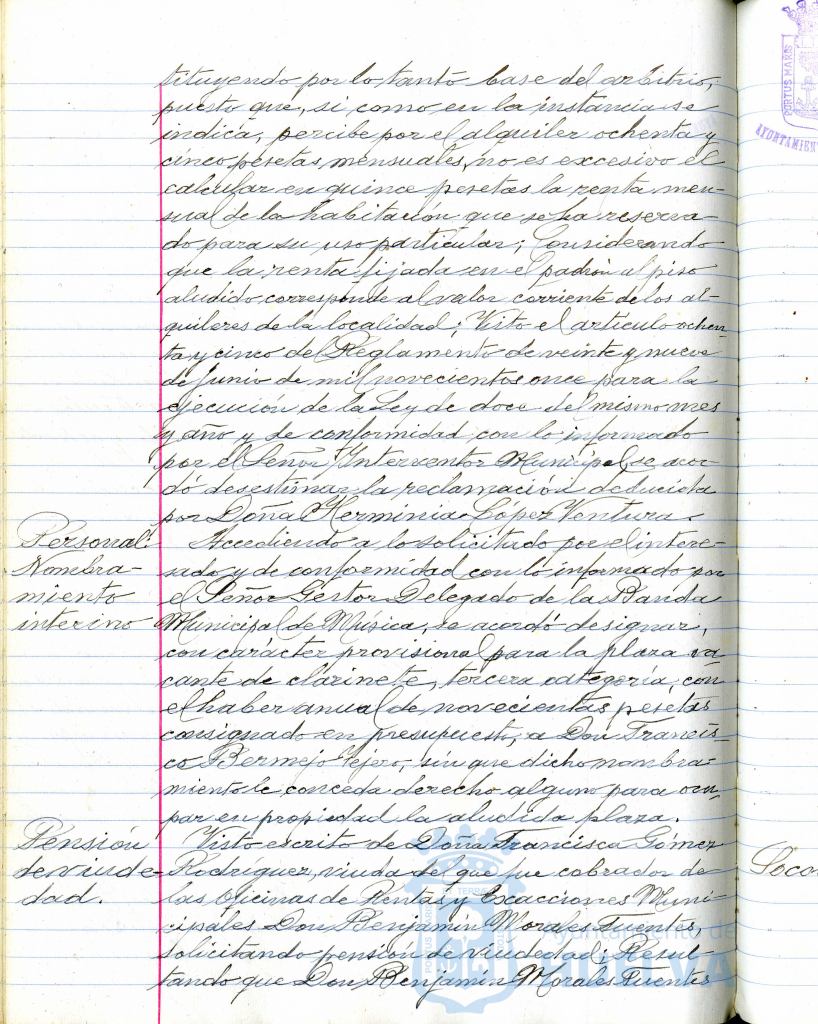 tituyendo por lo tanto base del arbitrio,
puesto que, si como en la instancia se
indica, percibe por el alquiler ochenta y
cinco pesetas mensuales, no es excesivo el
calcular en quince pesetas la renta men-
sual de la habitación que se ha reserva-
do para su uso particular; Considerando
que la renta fijada en el padrón al piso
aludido corresponde al valor corriente de los al-
quileres de la localidad; Visto el artículo ochen-
ta y cinco del Reglamento de veinte y nueve
de Junio de mil novecientos once para la
ejecución de la Ley de doce del mismo mes
y año y de conformidad con lo informado
por el Señor Interventor Municipal, se acor-
dó desestimar la reclamación deducida
por Doña Herminia López Ventura.
Personal.
Nombra-
miento
interino
Accediendo a lo solicitado por el intere-
sado y de conformidad con lo informado por
el Señor Gestor Delegado de la Banda
Municipal de Música, se acordó designar,
con carácter provisional para la plaza va-
cante de clarinete, tercera categoría, con
el haber anual de novecientas pesetas
consignado en presupuesto, a Don Francis-
co Bermejo Tejero, sin que dicho nombra-
miento le conceda derecho alguno para ocu-
par en propiedad la aludida plaza.
Pensión
de viude-
dad.
Visto escrito de Doña Francisca Gómez
Rodríguez, viuda del que fue cobrador de
las Oficinas de Rentas y Exacciones Muni-
cipales Don Benjamín Morales Fuentes,
solicitando pensión de viudedad; Resul-
tando que Don Benjamín Morales Fuentes
Soco
PORTUS MARIS
AYUNTAMIEN
PORTUS MARIS ET TERRAE
Ayuntamiento de
HUELVA